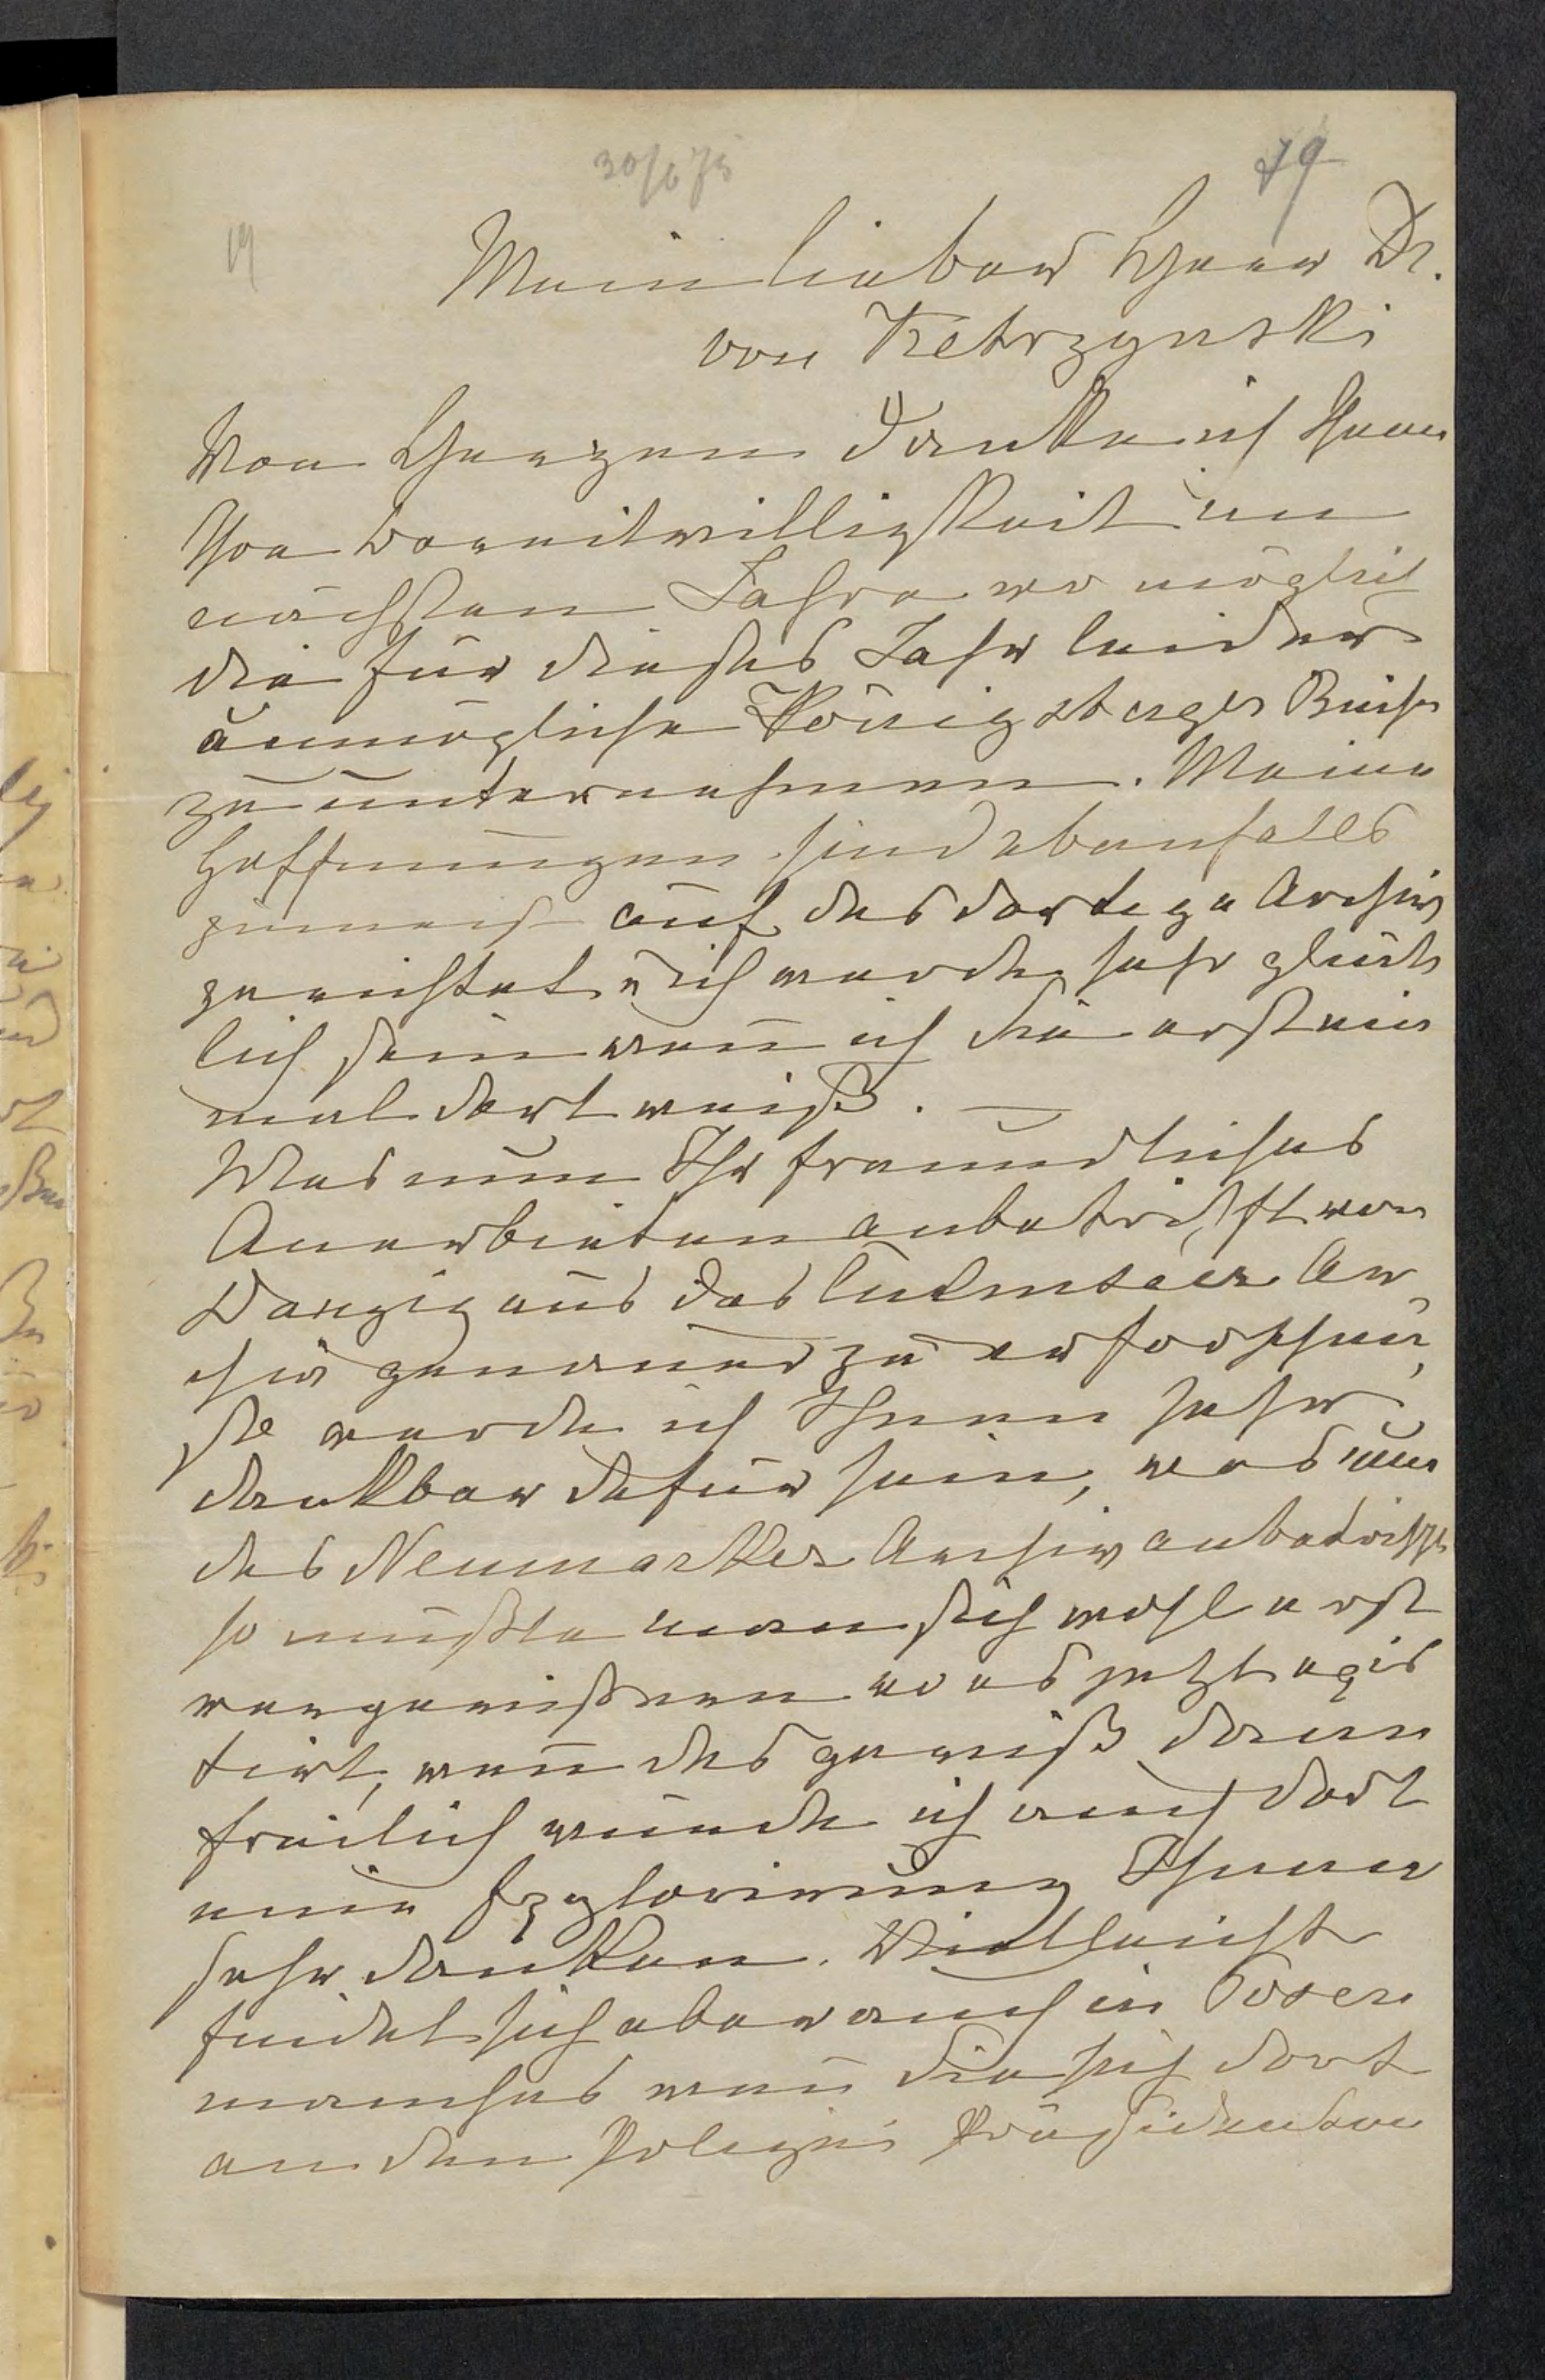 30/6 75
79
19
Mein lieber Herr Dr.
von Ketrzynski
Von Herzen danke ich Ihnen
Ihre Bereitwilligkeit im
nächsten Jahre wo möglich
die für dieses Jahr leider
unmögliche Königsberger Reise
zu unternehmen. Meine
Hoffnungen sind ebenfalls
zumeist auf das dortige Archiv
gerichtet u ich werde sehr glück
lich sein wenn ich Sie erst ein
mal dort weiß. —
Was nun Ihr freundliches
Anerbieten anbetrifft von
Danzig aus das Ar
chiv genauer zu erforschen,
so werde ich Ihnen sehr
dankbar dafür sein, was nun
das Neumarker Archiv anbetrifft
so müßte man sich wohl erst
vergewissern wo es jetzt exis
tirt, wenn das gewiß dann
freilich würde ich auch dort
eine Explorirung Ihnen
sehr danken. Vielleicht
findet sich aber auch in Posen
manches wenn Sie sich dort
an den Polizei Präsidenten